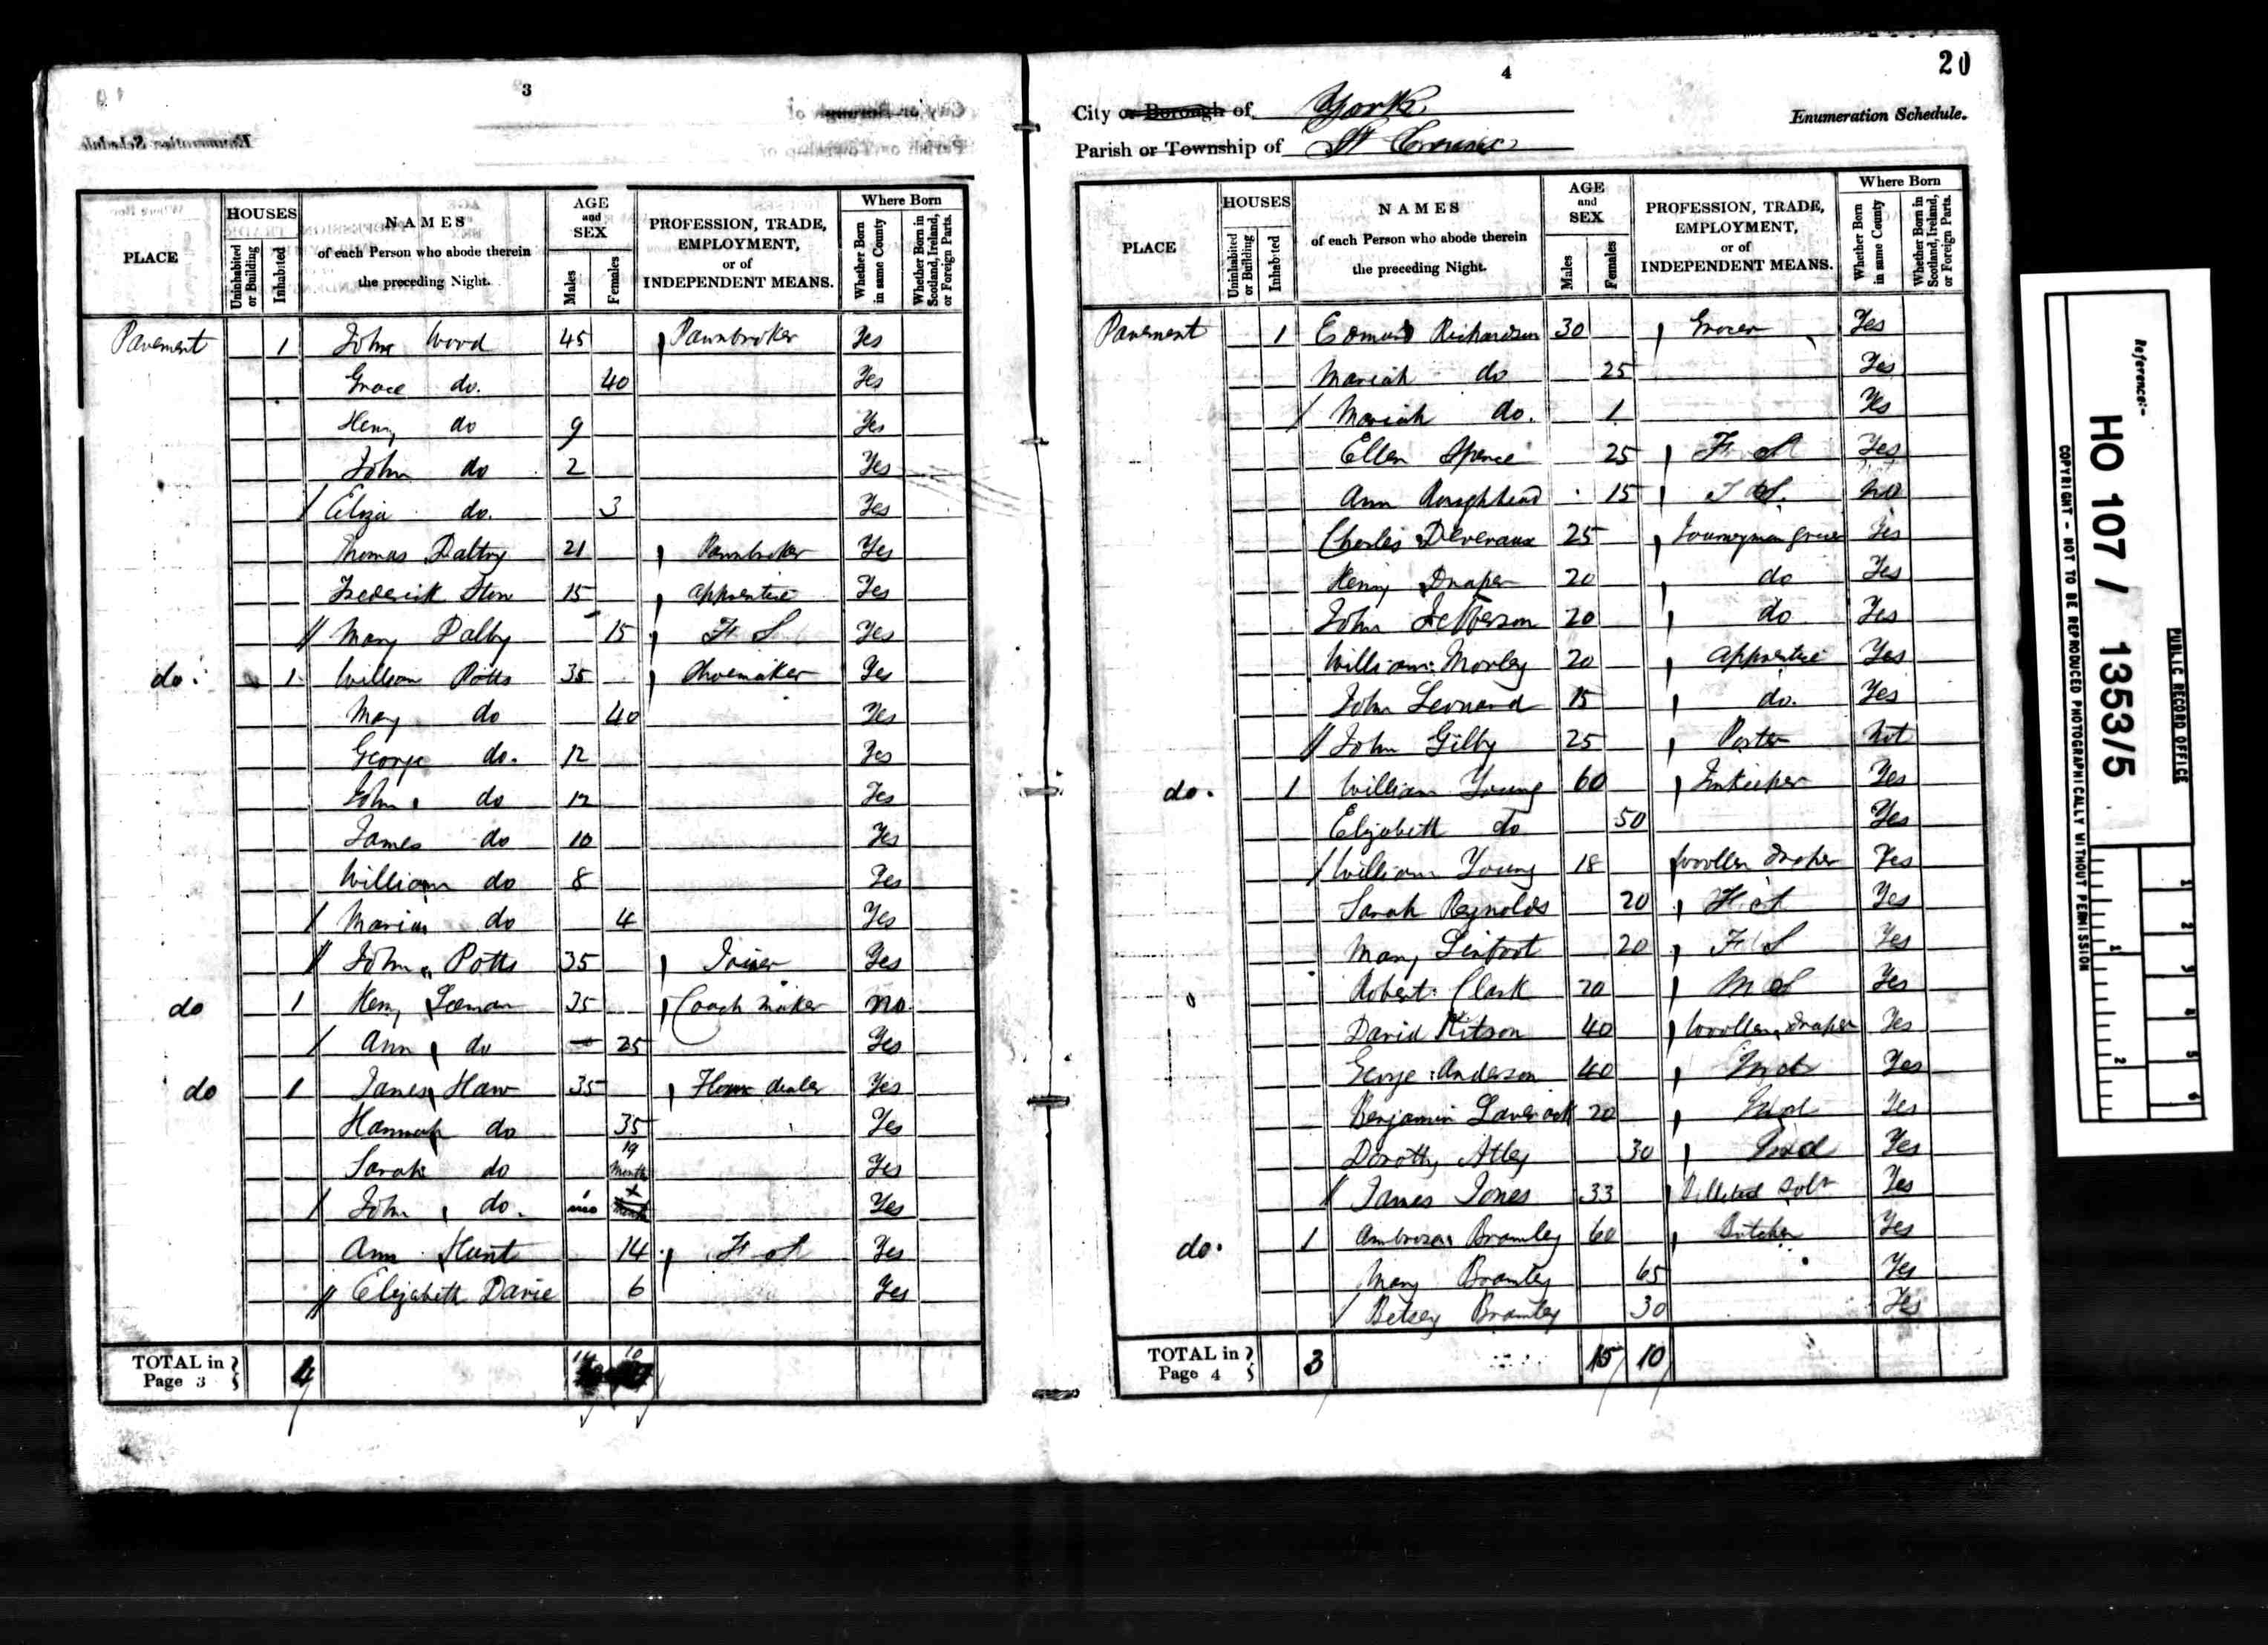 3
PLACE
HOUSES
Uninhabited or Building
Inhabited
NAMES
of each Person who abode therein
the preceding Night.
AGE
and
SEX
Males
Females
PROFESSION, TRADE,
EMPLOYMENT,
or of
INDEPENDENT MEANS.
Where Born
Whether Born in same County
Whether Born in Scotland, Ireland, or Foreign Parts.
Pavement 1 John Wood 45 Pawnbroker Yes
Grace do. 40 Yes
Henry do 9 Yes
John do 2 Yes
Eliza do. 3 Yes
Thomas Daltry 21 Pawnbroker Yes
Frederick 15 apprentice Yes
Mary Dalby 15 F S Yes
do. 1 William Potts 35 Shoemaker Yes
Mary do 40 Yes
George do. 12 Yes
John do 12 Yes
James do 10 Yes
William do 8 Yes
Maria do 4 Yes
John Potts 35 Joiner Yes
do 1 Henry Leeman 35 Coach maker no
Ann do 25 Yes
do 1 James Haw 35 Flour dealer Yes
Hannah do 35 Yes
Sarah do 19 Months Yes
John do. Yes
Ann Hunt 14 F S Yes
Elizabeth Davie 6 Yes
TOTAL in Page 3 4 14 10
4
20
City or Borough of York
Enumeration Schedule.
Parish or Township of St Crux
PLACE
HOUSES
Uninhabited or Building
Inhabited
NAMES
of each Person who abode therein
the preceding Night.
AGE
and
SEX
Males
Females
PROFESSION, TRADE,
EMPLOYMENT,
or of
INDEPENDENT MEANS.
Where Born
Whether Born in same County
Whether Born in Scotland, Ireland, or Foreign Parts.
Pavement 1 Edmund Richardson 30 Grocer Yes
Mariah do 25 Yes
Mariah do. 1 Yes
Ellen Spence 25 F S Yes
Ann Roughhead 15 F S. No
Charles Deveraux 25 Journeyman grocer Yes
Henry Draper 20 do Yes
John Jefferson 20 do Yes
William Morley 20 apprentice Yes
John Leonard 15 do. Yes
John Gilby 25 Porter Not
do. 1 William Young 60 Innkeeper Yes
Elizabeth do 50 Yes
William Young 18 Woollen draper Yes
Sarah Reynolds 20 F S Yes
Mary Linfoot 20 F S Yes
Robert Clark 20 M S Yes
David Kitson 40 Woollen draper Yes
George Anderson 40 Ind Yes
Benjamin Laverack 20 Ind Yes
Dorothy Atley 30 Ind Yes
James Jones 33 Billeted Solr Yes
do. 1 Ambrose Bramley 60 Butcher Yes
Mary Bramley 65 Yes
Betsey Bramley 30 Yes
TOTAL in Page 4 3 15 10
Reference:-
HO 107 / 1353/5
PUBLIC RECORD OFFICE
COPYRIGHT - NOT TO BE REPRODUCED PHOTOGRAPHICALLY WITHOUT PERMISSION
1
2